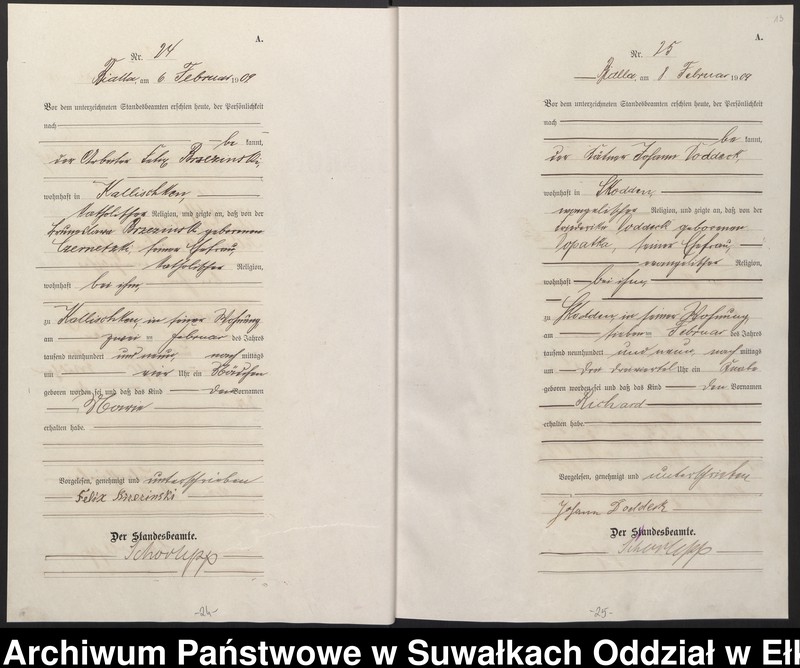 A.
Nr. 24
Bialla, am 6 Februar 1909
Vor dem unterzeichneten Standesbeamten erschien heute, der Persönlichkeit
nach
be kannt,
der Arbeiter Felix Brzezinski,
wohnhaft in Kallischken,
katholischer Religion, und zeigte an, daß von der
Brzezinski geborenen
seiner Ehefrau,
katholischer Religion,
wohnhaft bei ihm,
zu Kallischken, in seiner Wohnung
am zwei = Februar des Jahres
tausend neunhundert und neun, nach mittags
um vier Uhr ein Mädchen
geboren worden sei und daß das Kind den Vornamen
Marie
erhalten habe.
Vorgelesen, genehmigt und unterschrieben
Felix Brzezinski
Der Standesbeamte.
-24-
13
A.
Nr. 25
Bialla, am 8 Februar 1909
Vor dem unterzeichneten Standesbeamten erschien heute, der Persönlichkeit
nach
be kannt,
der Kätner Johann Doddeck,
wohnhaft in Skodden,
evangelischer Religion, und zeigte an, daß von der
Friederike Doddeck geborenen
Lopatka, seiner Ehefrau,
evangelischer Religion,
wohnhaft bei ihm,
zu Skodden, in seiner Wohnung
am sieben = Februar des Jahres
tausend neunhundert und neun, nach mittags
um drei dreiviertel Uhr ein Knabe
geboren worden sei und daß das Kind den Vornamen
Richard
erhalten habe.
Vorgelesen, genehmigt und unterschrieben
Johann Doddeck
Der Standesbeamte.
-25-
Archiwum Państwowe w Suwałkach Oddział w Eł